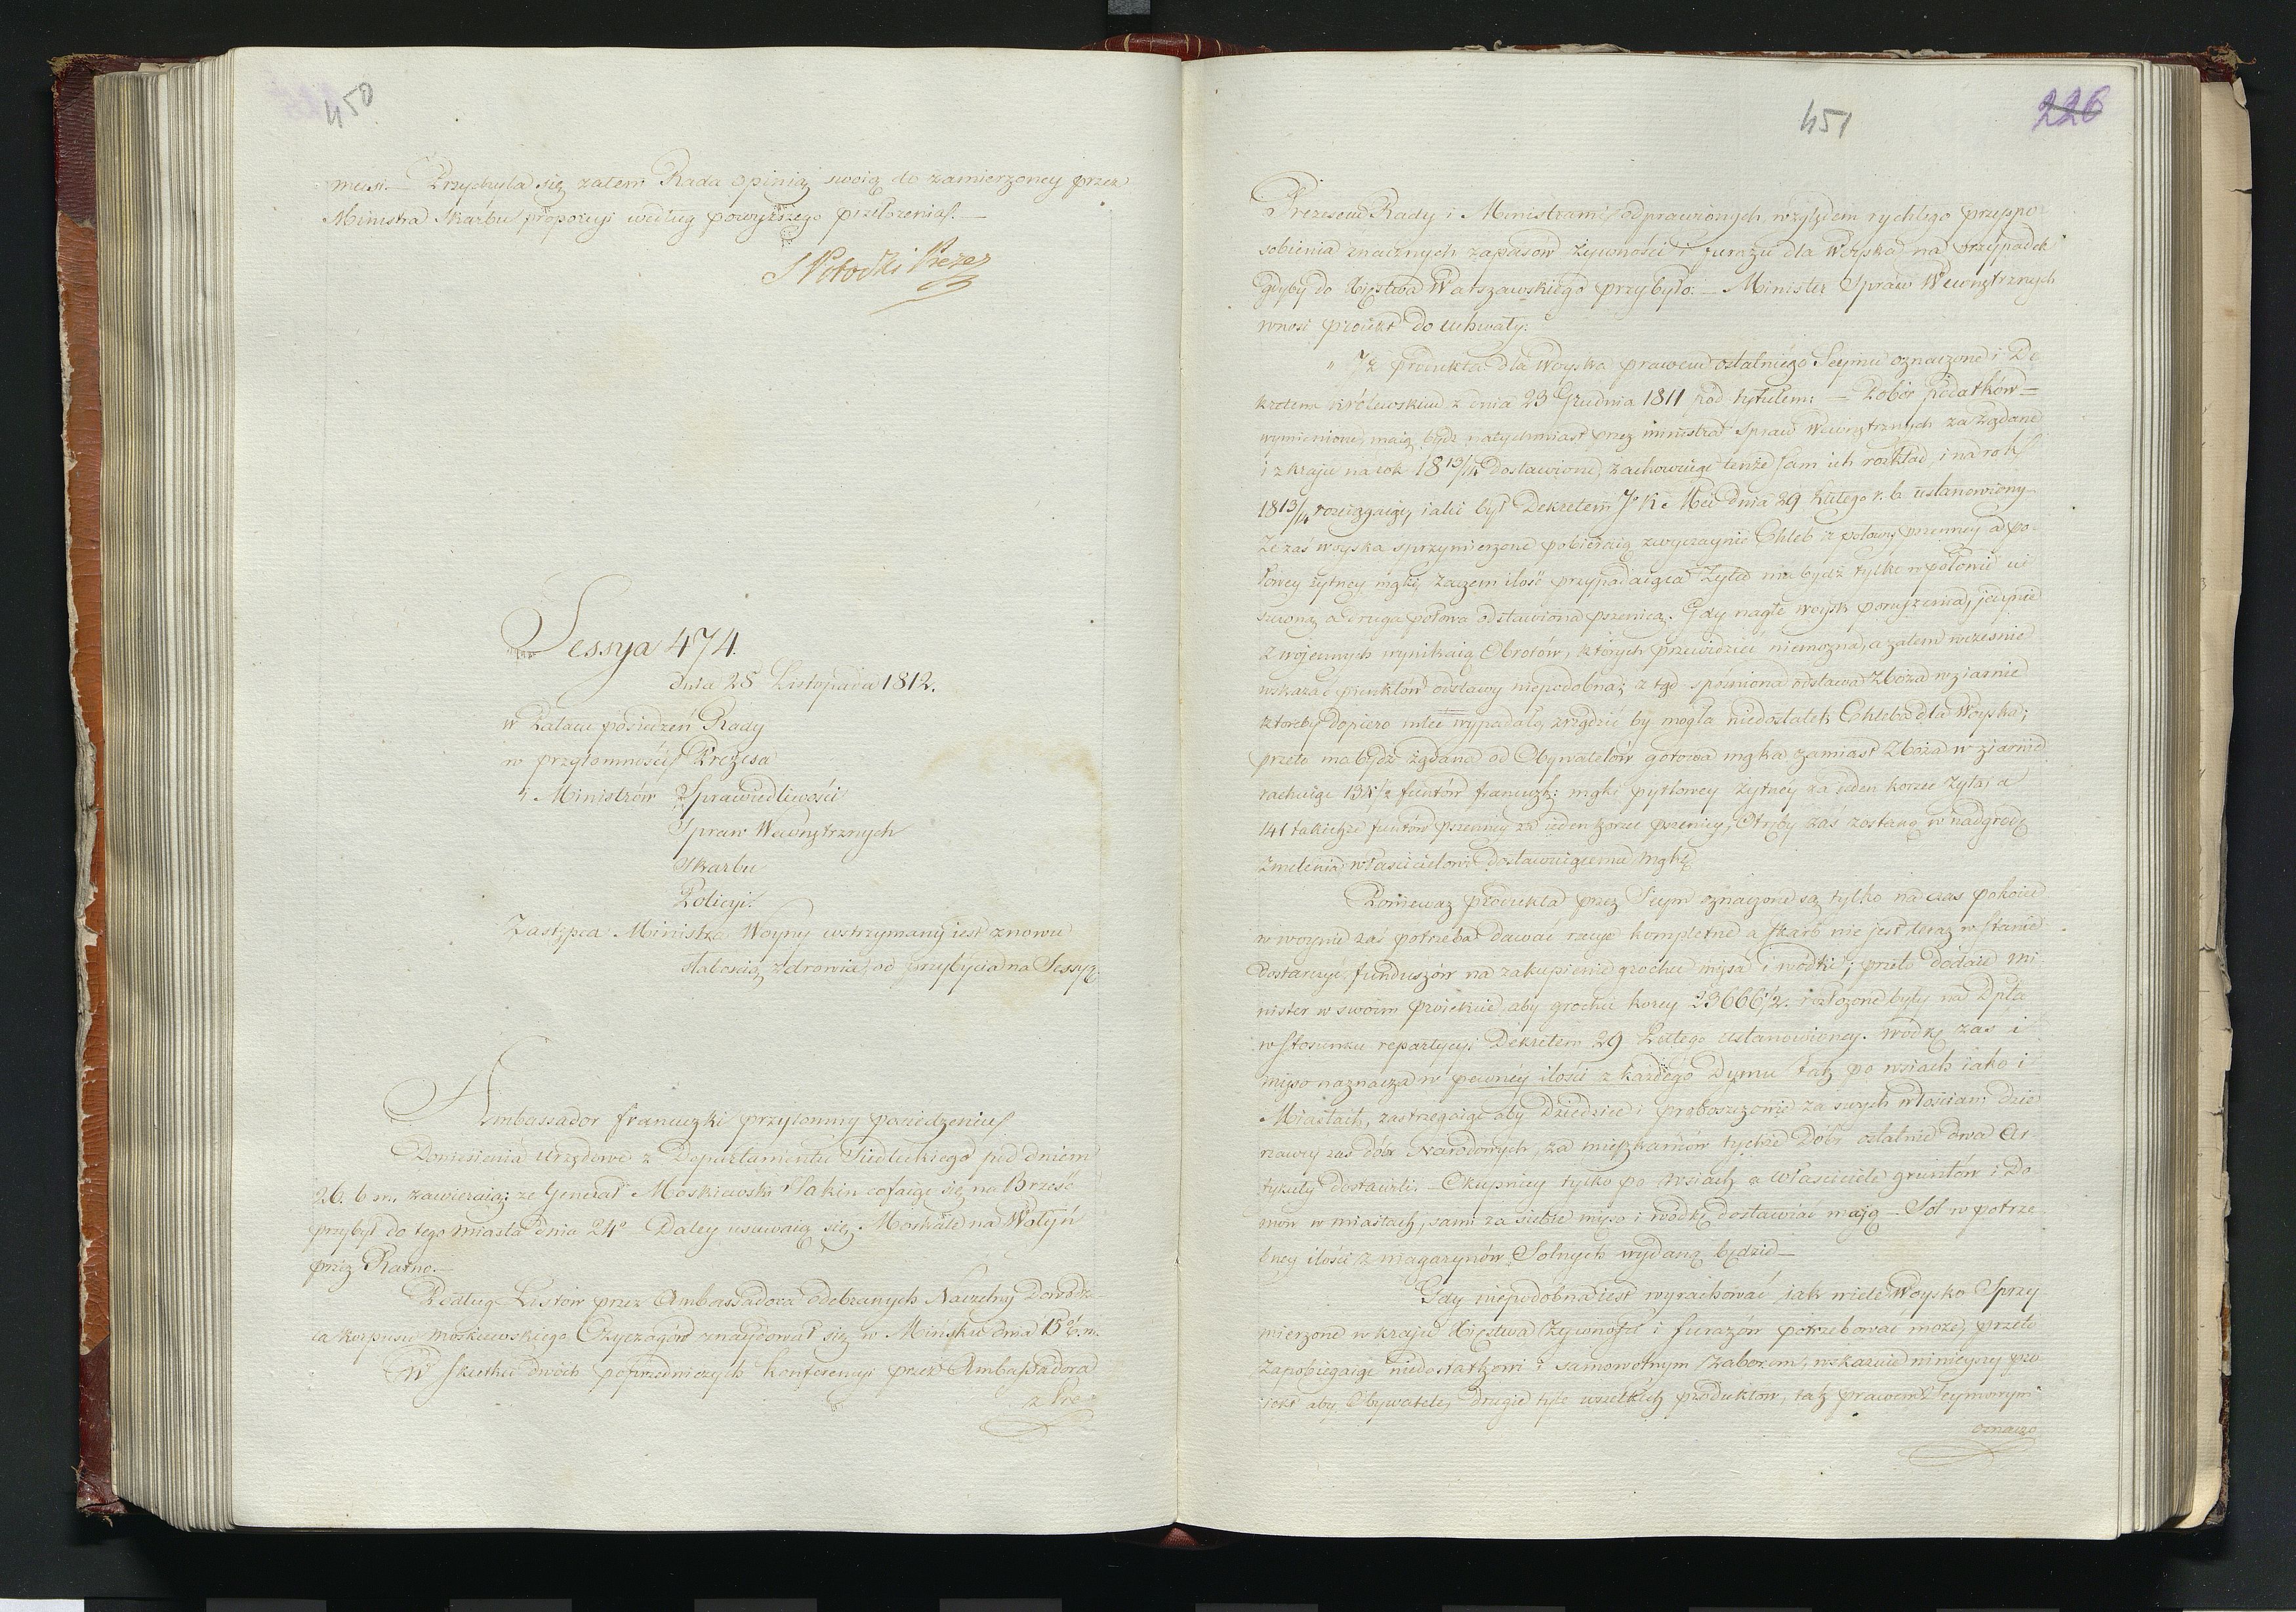 450
musi. — Przychyla się zatem Rada opinią swoią do zamierzoney przez
Ministra Skarbu propozycyi według powyższego przełożenia. —
S Potocki Prezes
Sessya 474.
dnia 28 Listopada 1812.
w Pałacu posiedzeń Rady
w przytomności Prezesa
i Ministrów Sprawiedliwości
Spraw Wewnętrznych
Skarbu
Policyi.
Zastępca Ministra Woyny wstrzymany iest znowu
słabością zdrowia od przybycia na Sessyą.
Ambassador francuzki przytomny posiedzeniu
Doniesienia urzędowe z Departamentu Siedleckiego pod dniem
26. b. m. zawieraią: że Generał Moskiewski Sakin cofaiąc się na Brześć
przybył do tego miasta dnia 24º Daley usuwaią się Moskale na Wołyń
przez Ratno. —
Podług Listów przez Ambassadora odebranych Naczelny Dowódz-
ca korpusu moskiewskiego Czyczagów znaydował się w Mińsku dnia 15º b. m.
W skutku dwóch pośredniczych konferencyi przez Ambassadora
z Pre
451
226
Prezesem Rady i Ministrami odprawionych, względem rychłego przyspo-
sobienia znacznych zapasów żywności i furażu dla Woyska na przypadek
gdyby do Xięstwa Warszawskiego przybyło. — Minister Spraw Wewnętrznych
wnosi proiekt do uchwały:
" Że produkta dla Woyska prawem ostatniego Seymu oznaczone i De-
kretem królewskim z dnia 23 Grudnia 1811 pod tytułem: — Pobór podatków —
wymienione, maią bydź natychmiast przez ministra Spraw Wewnętrznych zażądane
i z kraju na rok 1813/14 dostawione, zachowuiąc tenże sam ich rozkład, i na rok
1813/14 rozciągaiąc, iaki był Dekretem J. K. Mci dnia 29 Lutego r. b. ustanowiony
Że zaś woyska sprzymierzone pobieraią zwyczaynie Chleb z połowy pszenney a po-
łowy żytney mąki, zaczem ilość przypadaiąca Żyta ma bydź tylko w połowie ui-
szczoną a druga połowa odstawiona pszenicą. Gdy nagłe woysk poruszenia, jedynie
z wojennych wynikaią Obrotów, których przewidzieć niemożna, a zatem wcześnie
wskazać punktów odstawy niepodobna; z tąd spóźniona odstawa Zboża w ziarnie
któreby dopiero mleć wypadało, zrządzić by mogła niedostatek Chleba dla Woyska;
przeto ma bydź żądana od Obywatelów gotowa mąka zamiast Zboża w ziarnie
rachuiąc 134 1/2 funtów francuzk: mąki pytlowey żytney za ieden korzec żyta, a
141 takichże funtów pszenney za ieden korzec pszenicy, Otręby zaś zostaną w nadgrodę
zmełenia właścicielowi dostawuiącemu mąkę.
Ponieważ produkta przez Seym oznaczone są tylko na czas pokoiu
w woynie zaś potrzeba dawać racye kompletne a skarb nie jest teraz w stanie
dostarczyć funduszów na zakupienie grochu mięsa i wódki; przeto dodaie mi-
nister w swoim proiekcie, aby grochu korcy 23666 1/2. rozłożone były na Dpta
w stosunku repartycyi Dekretem 29 Lutego ustanowioney. Wódkę zaś i
mięso naznacza w pewnéy ilości z każdego Dymu tak po wsiach iako i
Miastach, zastrzegaiąc aby Dziedzice i proboszczowie za swych włościan; dzie-
rżawcy zaś dóbr Narodowych, za mieszkańców tychże Dóbr ostatnie dwa Ar-
tykuły dostawili. — Okupnicy tylko po wsiach a właściciele gruntów i Do-
mów w miastach, sami za siebie mięso i wódkę dostawiać mają — Sól w potrze-
bney ilości z magazynów Solnych wydaną będzie —
Gdy niepodobna iest wyrachować jak wiele Woysko Sprzy-
mierzone w kraju Xięstwa Żywności i furażów potrzebować może, przeto
zapobiegaiąc niedostatkowi i samowolnym zaborom, wskazuie ninieyszy pro-
iekt aby Obywatele, drugie tyle wszelkich produktów, tak prawem Seymowym
oznaczo